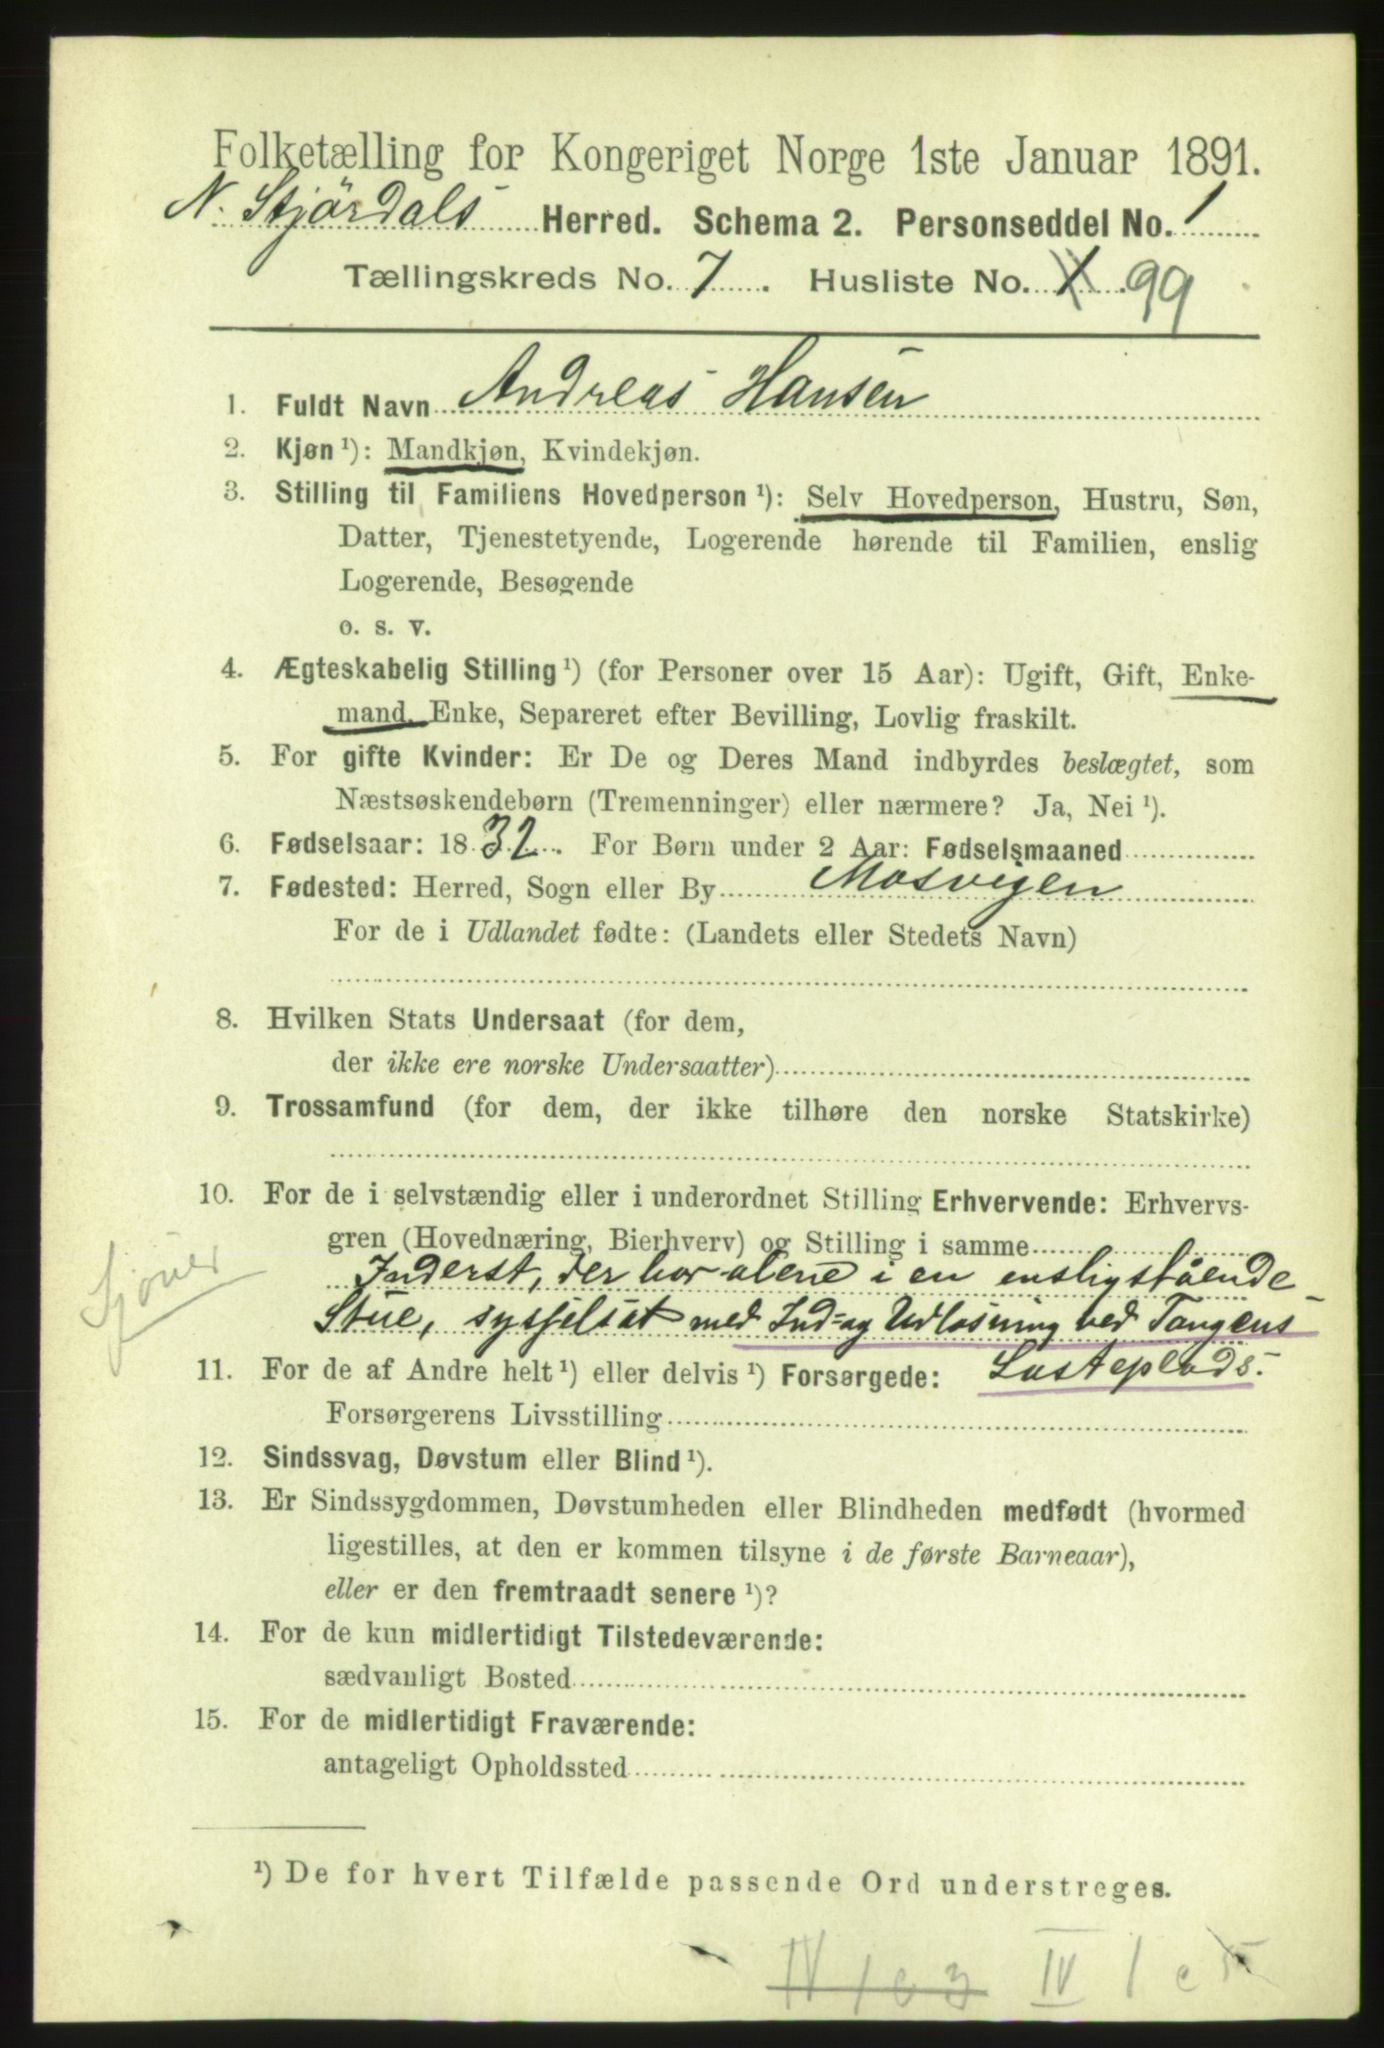 Folketælling for Kongeriget Norge 1ste Januar 1891.
N. Stjørdals Herred. Schema 2. Personseddel No. 1
Tællingskreds No. 7. Husliste No. 1. 99
1. Fuldt Navn Andreas Hansen
2. Kjøn ¹): Mandkjøn, Kvindekjøn.
3. Stilling til Familiens Hovedperson ¹): Selv Hovedperson, Hustru, Søn,
Datter, Tjenestetyende, Logerende hørende til Familien, enslig
Logerende, Besøgende
o. s. v.
4. Ægteskabelig Stilling ¹) (for Personer over 15 Aar): Ugift, Gift, Enke-
mand, Enke, Separeret efter Bevilling, Lovlig fraskilt.
5. For gifte Kvinder: Er De og Deres Mand indbyrdes beslægtet, som
Næstsøskendebørn (Tremenninger) eller nærmere? Ja, Nei ¹).
6. Fødselsaar: 1832. For Børn under 2 Aar: Fødselsmaaned
7. Fødested: Herred, Sogn eller By Mosvigen
For de i Udlandet fødte: (Landets eller Stedets Navn)
8. Hvilken Stats Undersaat (for dem,
der ikke ere norske Undersaatter)
9. Trossamfund (for dem, der ikke tilhøre den norske Statskirke)
10. For de i selvstændig eller i underordnet Stilling Erhvervende: Erhvervs-
gren (Hovednæring, Bierhverv) og Stilling i samme
Inderst, der bor alene i en ensligstående
Stue, sysselsat med Ind- og Udlosning ved Tangens
11. For de af Andre helt ¹) eller delvis ¹) Forsørgede: Lasteplads.
Forsørgerens Livsstilling
12. Sindssvag, Døvstum eller Blind ¹).
13. Er Sindssygdommen, Døvstumheden eller Blindheden medfødt (hvormed
ligestilles, at den er kommen tilsyne i de første Barneaar),
eller er den fremtraadt senere ¹)?
14. For de kun midlertidigt Tilstedeværende:
sædvanligt Bosted
15. For de midlertidigt Fraværende:
antageligt Opholdssted
¹) De for hvert Tilfælde passende Ord understreges.
IV 103 IV 1 c